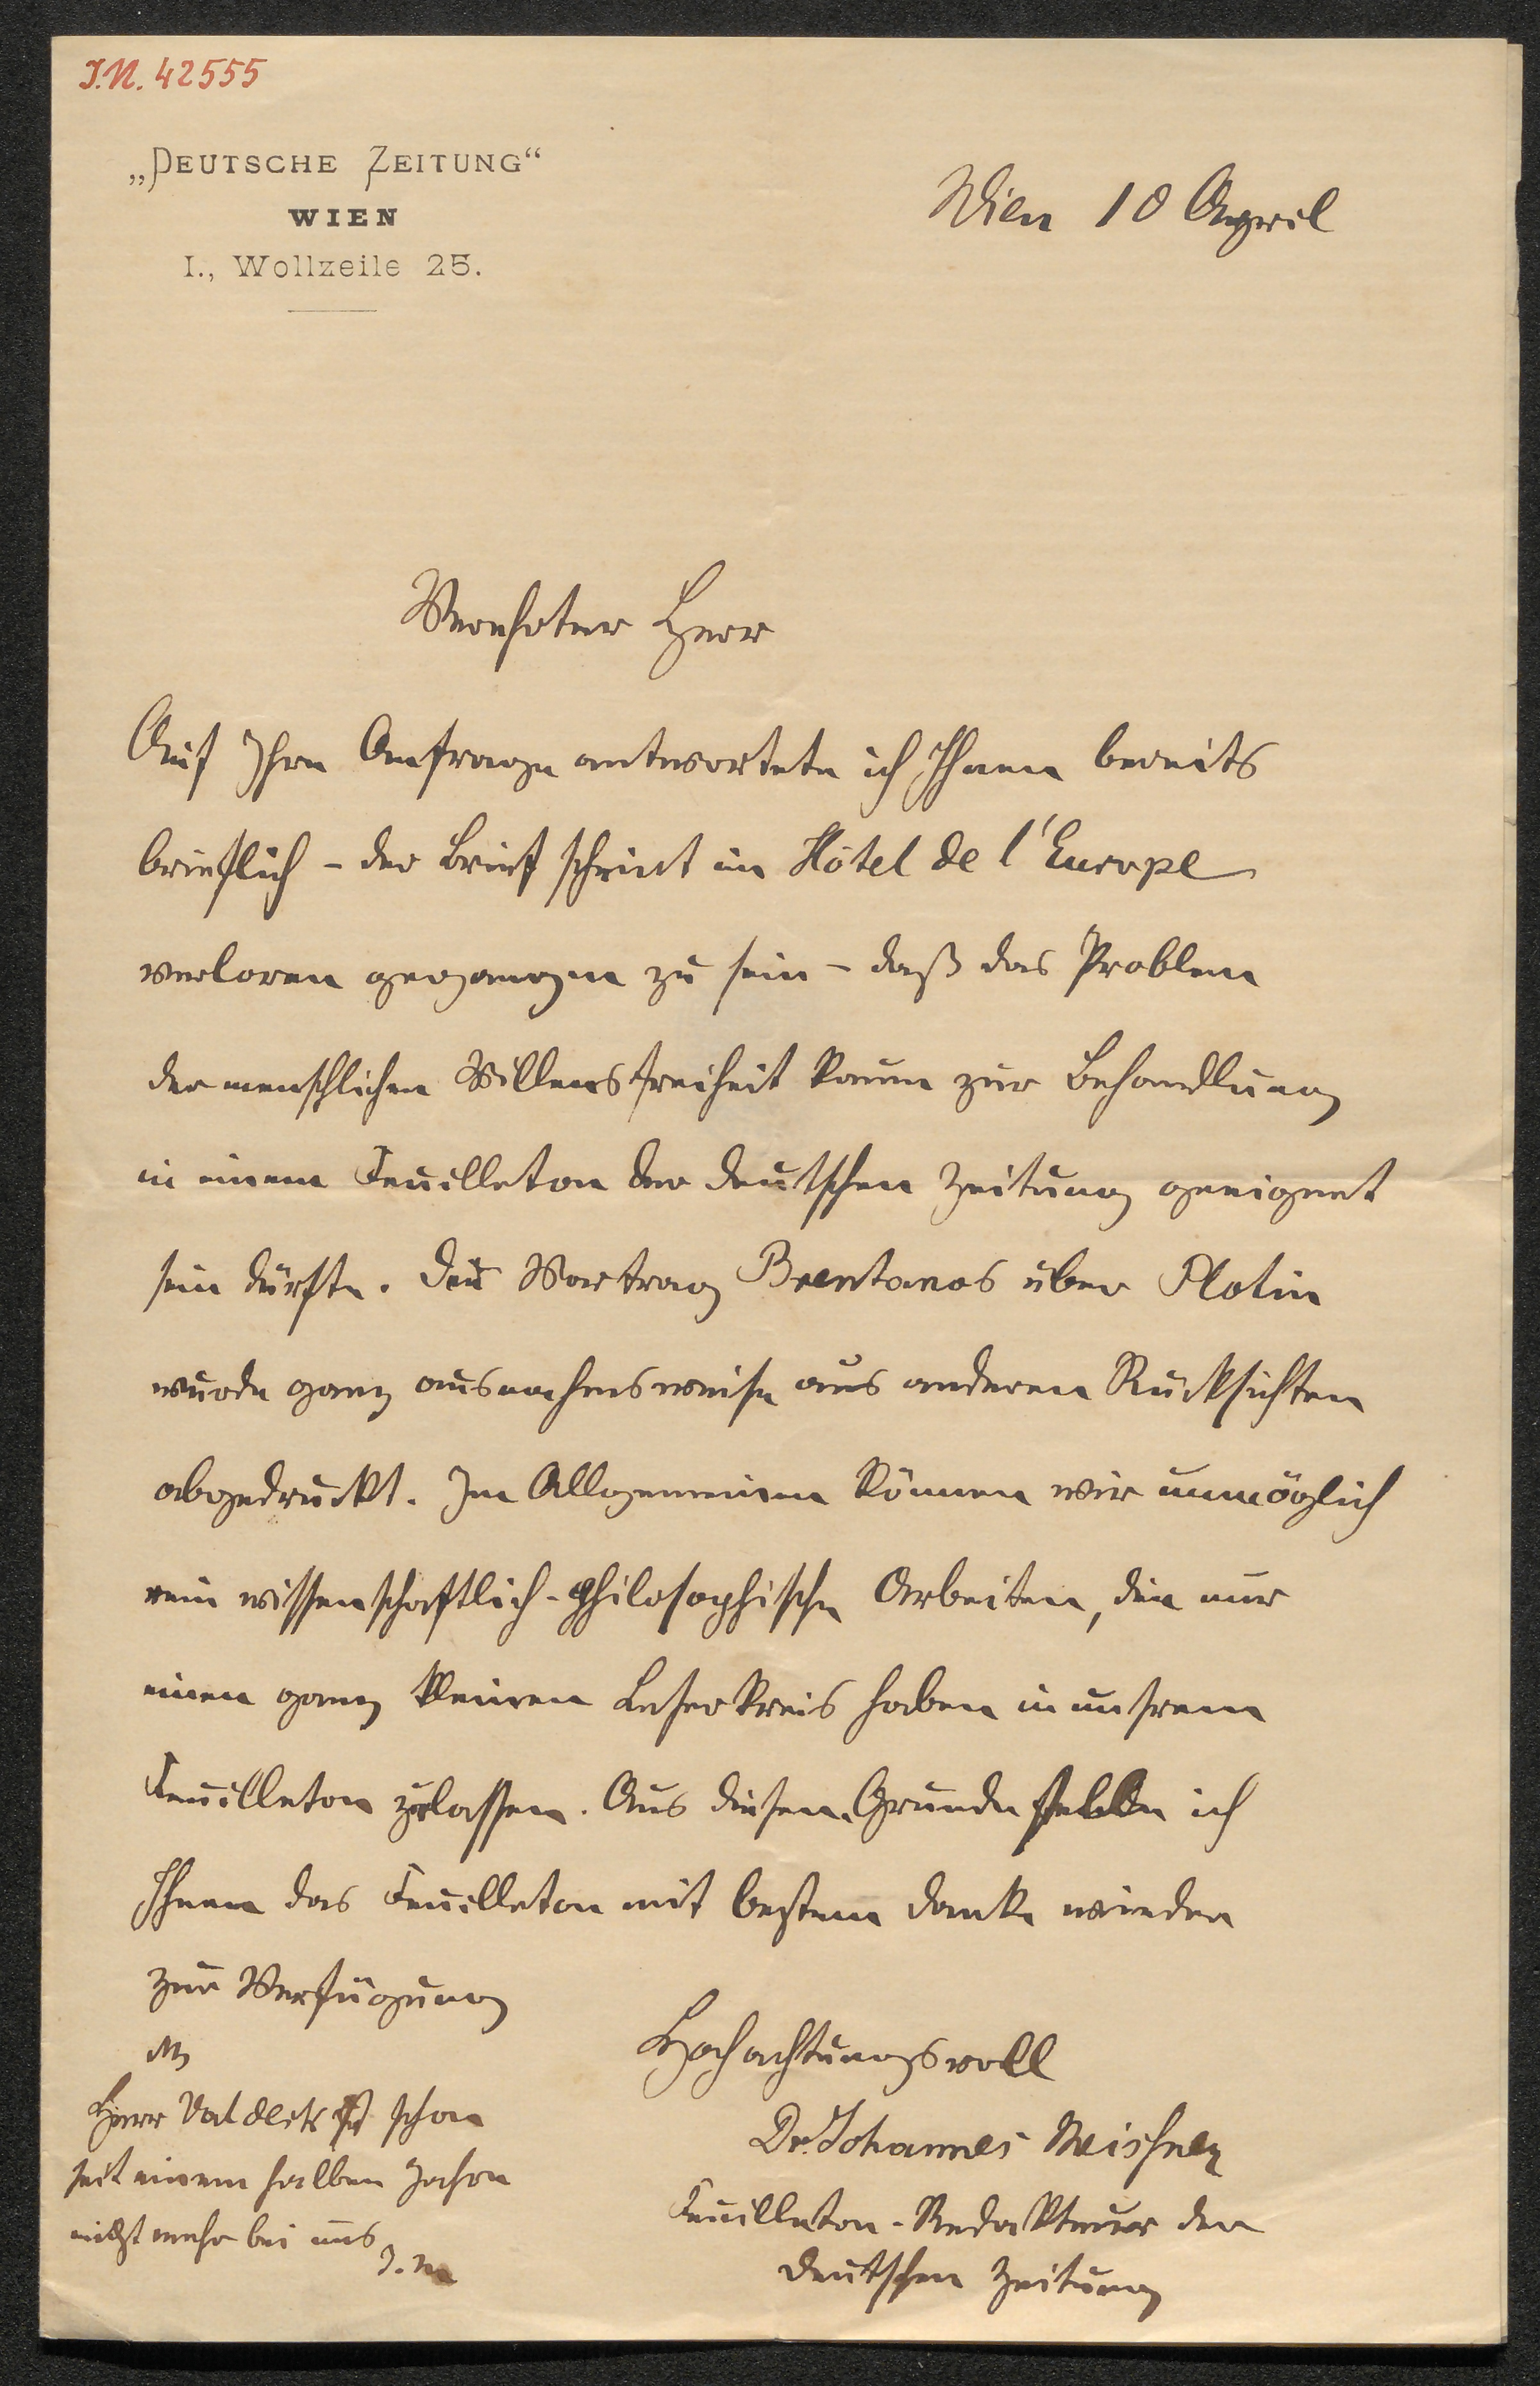 I.N. 42555
„DEUTSCHE ZEITUNG“
WIEN
I., Wollzeile 25.
Wien 10 April
Verehrter Herr
Auf Ihre Anfrage antwortete ich Ihnen bereits
brieflich – der Brief scheint im Hôtel de l'Europe
verloren gegangen zu sein – daß das Problem
der menschlichen Willensfreiheit kaum zur Behandlung
in einem Feuilleton der deutschen Zeitung geeignet
sein dürfte. Der Vortrag Brentanos über Plotin
wurde ganz ausnahmsweise aus anderen Rücksichten
abgedruckt. Im Allgemeinen können wir unmöglich
rein wissenschaftlich-philosophische Arbeiten, die nur
einen ganz kleinen Leserkreis haben in unsrem
Feuilleton zulassen. Aus diesem Grunde stelle ich
Ihnen das Feuilleton mit bestem Danke wieder
zur Verfügung
Hochachtungsvoll
Dr. Johannes Meissner
Feuilleton-Redakteur der
deutschen Zeitung
Herr ist schon
seit einem halben Jahre
nicht mehr bei uns
J. M